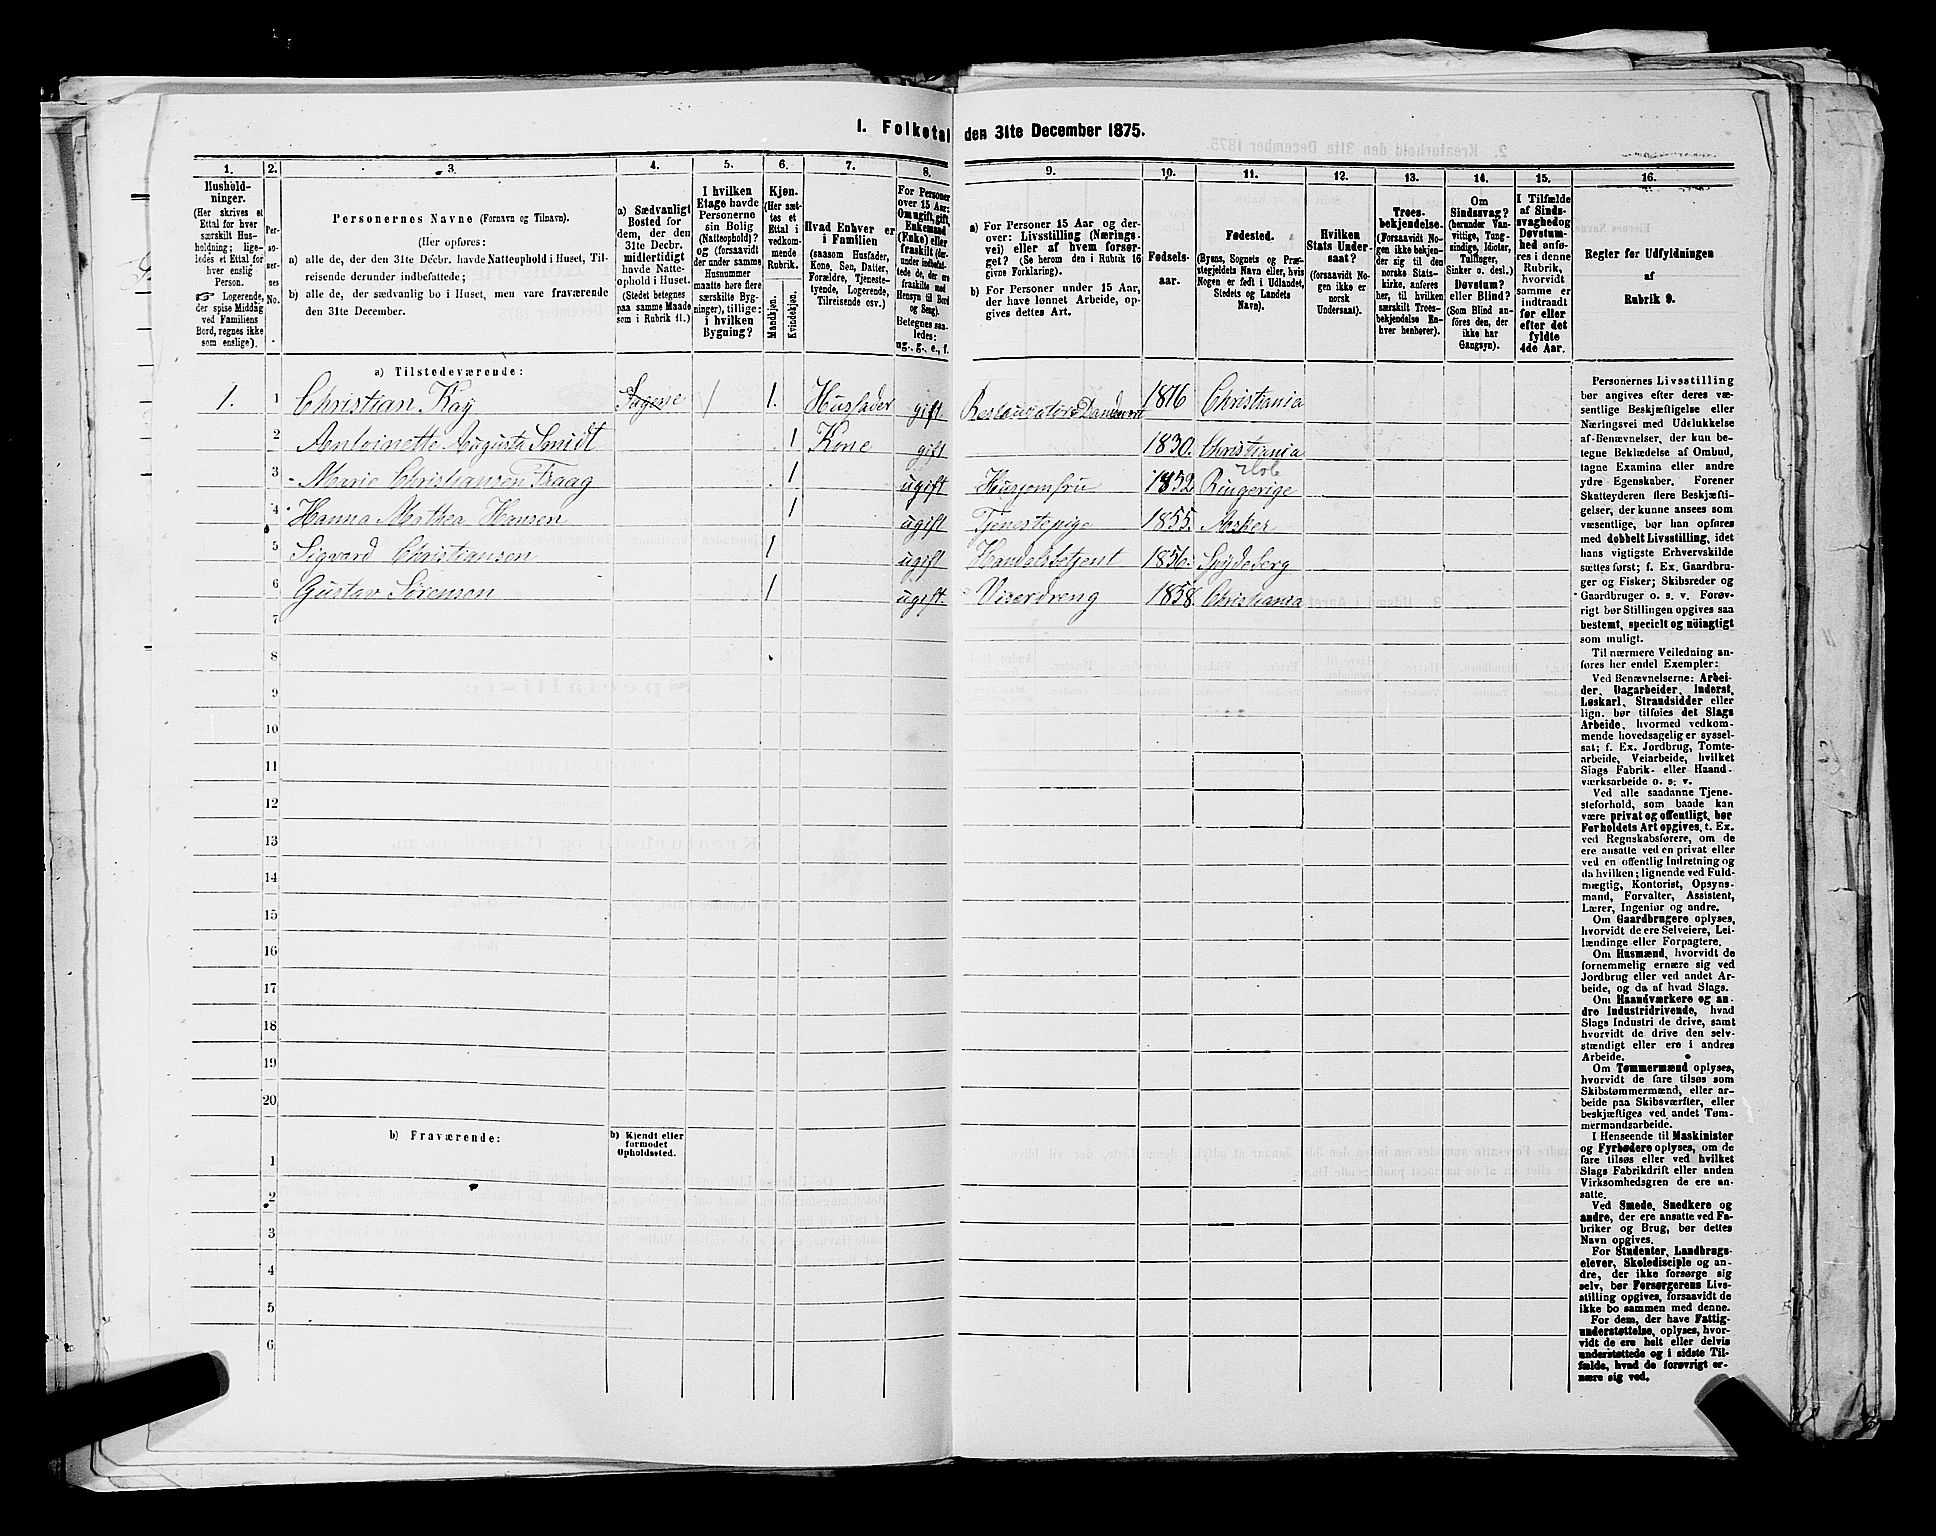 I. Folketal den 31te December 1875.
1. 2. 3. 4. 5. 6. 7. 8. 9. 10. 11. 12. 13. 14. 15. 16.
Husholdninger.
(Her skrives et
Ettal for hver
særskilt Husholdning;
ligeledes et Ettal for
hver enslig
Person.
☞ Logerende,
der spise Middag
ved Familiens
Bord, regnes ikke
som enslige).
Personernes No.
Personernes Navne (Fornavn og Tilnavn).
(Her opføres:
a) alle de, der den 31te Decbr. havde Natteophold i Huset, Tilreisende
derunder indbefattede;
b) alle de, der sædvanlig bo i Huset, men vare fraværende
den 31te December.
a) Sædvanligt
Bosted for
dem, der den
31te Decbr.
midlertidigt
havde Natteophold
i Huset.
(Stedet betegnes
paa samme Maade
som i Rubrik 11.)
I hvilken
Etage havde
Personerne
sin Bolig
(Natteophold)?
og (forsaavidt
der under samme
Husnummer
maatte høre flere
særskilte Bygninger),
tillige:
i hvilken
Bygning?
Kjøn.
(Her sættes
et
Ettal i
vedkommende
Rubrik.
Mandkjøn. Kvindekjøn.
Hvad Enhver er
i Familien
(saasom Husfader,
Kone, Søn, Datter,
Forældre, Tjenestetyende,
Logerende,
Tilreisende osv.)
For Personer
over 15 Aar:
Om ugift, gift,
Enkemand
(Enke) eller
fraskilt
Betegnes saaledes:
ug., g., e., f.
a) For Personer 15 Aar og derover:
Livsstilling (Næringsvei)
eller af hvem forsørget?
(Se herom den i Rubrik 16
givne Forklaring).
b) For Personer under 15 Aar,
der have lønnet Arbeide, opgives
dettes Art.
Fødselsaar.
Fødested.
(Byens, Sognets og Præstegjeldets
Navn eller, hvis
Nogen er født i Udlandet,
Stedets og Landets
Navn).
Hvilken
Stats Undersaat?
(forsaavidt Nogen
ikke er
norsk
Undersaat).
Troesbekjendelse.
(Forsaavidt Nogen
ikke bekjender
sig til den
norske Statskirke,
anføres
her, til hvilken
særskilt Troesbekjendelse
Enhver
henhører).
Om
Sindssvag?
(herunder Vanvittige,
Tungsindige,
Idioter,
Tullinger,
Sinker o. desl.)
Døvstum?
eller Blind?
(Som Blind anføres
den, der
ikke har
Gangsyn).
I Tilfælde
af Sindssvaghed
og
Døvstumhed
anføres
i denne
Rubrik,
hvorvidt
samme er
indtraadt
før eller
efter det
fyldte
4de Aar.
Regler for Udfyldningen
af
Rubrik 9.
a) Tilstedeværende:
1. 1 Christian Kay Sagene / 1. Husfader gift Restauratør 1816 Christiania
2 Antoinette Augusta Smidt 1 Kone gift 1830. Christiania
3 Marie Christiansen Fraag 1 ugift Husjomfru 1852 Ringerige
4 Hanna Mathea Hansen 1 ugift Tjenestepige 1855. Asker
5 Sigvard Christiansen 1 ugift Handelsbetjent 1856. Spydeberg
6 Gustav Sørensen 1 ugift. Viserdreng 1858. Christiania
7
8
9
10
11
12
13
14
15
16
17
18
19
20
b) Fraværende:
b) Kjendt eller
formodet
Opholdssted.
1
2
3
4
5
6
Personernes Livsstilling
bør angives efter deres væsentlige
Beskjæftigelse eller
Næringsvei med Udelukkelse
af Benævnelser, der kun betegne
Beklædelse af Ombud,
tagne Examina eller andre
ydre Egenskaber. Forener
Skatteyderen flere Beskjæftigelser,
der kunne ansees som
væsentlige, bør han opføres
med dobbelt Livsstilling, idet
hans vigtigste Erhvervskilde
sættes først; f. Ex. Gaardbruger
og Fisker; Skibsreder og
Gaardbruger o. s. v. Forøvrigt
bør Stillingen opgives saa
bestemt, specielt og nöiagtigt
som muligt.
Til nærmere Veiledning anføres
her endel Exempler:
Ved Benævnelserne: Arbeider,
Dagarbeider, Inderst,
Løskarl, Strandsidder eller
lign. bør tilføies det Slags
Arbeide, hvormed vedkommende
hovedsagelig er sysselsat;
f. Ex. Jordbrug, Tomtearbeide,
Veiarbeide, hvilket
Slags Fabrik- eller Haandværksarbeide
o. s. v.
Ved alle saadanne Tjenesteforhold,
som baade kan
være privat og offentligt, bør
Forholdets Art opgives, t. Ex.
ved Regnskabsførere, om de
ere ansatte ved en privat eller
ved en offentlig Indretning og
da hvilken; lignende ved Fuldmægtig,
Kontorist, Opsynsmand,
Forvalter, Assistent,
Lærer, Ingeniør og andre.
Om Gaardbrugere oplyses,
hvorvidt de ere Selveiere, Leilændinge
eller Forpagtere.
Om Husmænd, hvorvidt de
fornemmelig ernære sig ved
Jordbrug eller ved andet Arbeide,
og da af hvad Slags.
Om Haandværkere og andre
Industridrivende, hvad
Slags Industri de drive, samt
hvorvidt de drive den selvstændigt
eller ere i andres
Arbeide.
Om Tømmermænd oplyses,
hvorvidt de fare tilsøs som
Skibstømmermænd, eller arbeide
paa Skibsværfter, eller
beskjæftiges ved andet Tømmermandsarbeide.
I Henseende til Maskinister
og Fyrbødere oplyses, om de
fare tilsøs eller ved hvilket
Slags Fabrikdrift eller anden
Virksomhedsgren de ere ansatte.
Ved Smede, Snedkere og
andre, der ere ansatte ved Fabriker
og Brug, bør dettes
Navn opgives.
For Studenter, Landbrugselever,
Skoledisciple og andre,
der ikke forsørge sig
selv, bør Forsørgerens Livsstilling
opgives, forsaavidt de
ikke bo sammen med denne.
For dem, der have Fattigunderstøttelse,
oplyses, hvorvidt
de ere helt eller delvis
understøttede og i sidste Tilfælde,
hvad de forøvrigt ernære
sig ved.